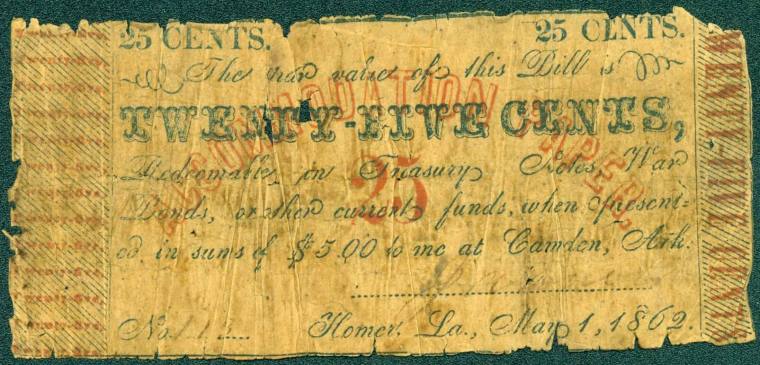 25 CENTS. 25 CENTS.
The par value of this Bill is
TWENTY-FIVE CENTS,
Redeemable in Treasury Notes, War
Bonds, or other current funds, when present-
ed in sums of $5.00 to me at Camden, Ark.
No.
Homer, La., May 1, 1862.
ACCOMODATION PAPER.
25
TWENTY-FIVE CENTS